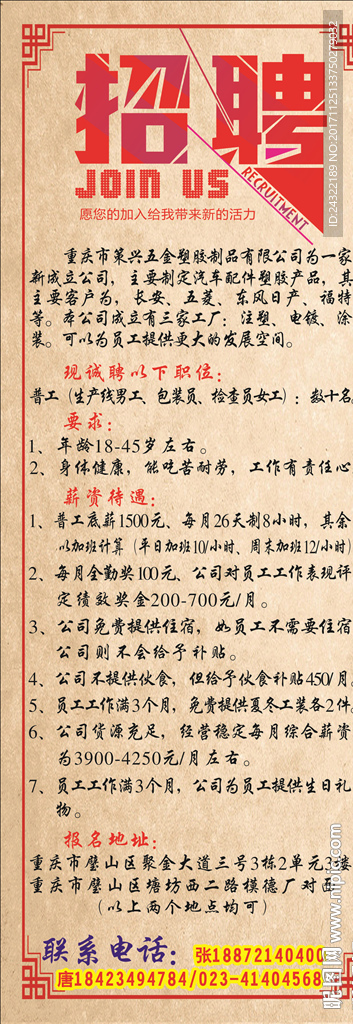 招聘
JOIN US
RECRUITMENT
愿您的加入给我带来新的活力
重庆市策兴五金塑胶制品有限公司为一家
新成立公司，主要制定汽车配件塑胶产品，其
主要客户为，长安、五菱、东风日产、福特
等。本公司成立有三家工厂：注塑、电镀、涂
装。可以为员工提供更大的发展空间。
现诚聘以下职位：
普工（生产线男工、包装员、检查员女工）：数十名
要求：
1、年龄18-45岁左右。
2、身体健康，能吃苦耐劳，工作有责任心
薪资待遇：
1、普工底薪1500元、每月26天制8小时，其余
以加班计算（平日加班10/小时、周末加班12/小时）
2、每月全勤奖100元、公司对员工工作表现评
定绩效奖金200-700元/月。
3、公司免费提供住宿，如员工不需要住宿
公司则不会给予补贴。
4、公司不提供伙食，但给予伙食补贴450/月。
5、员工工作满3个月，免费提供夏冬工装各2件。
6、公司货源充足，经营稳定每月综合薪资
为3900-4250元/月左右。
7、员工工作满3个月，公司为员工提供生日礼
物。
报名地址：
重庆市璧山区聚金大道三号3栋2单元3楼
重庆市璧山区塘坊西二路模德厂对面
（以上两个地点均可）
联系电话：张18872140400
唐18423494784/023-41404568
ID:24322189 NO:20171125133750279032
昵图网 www.nipic.com